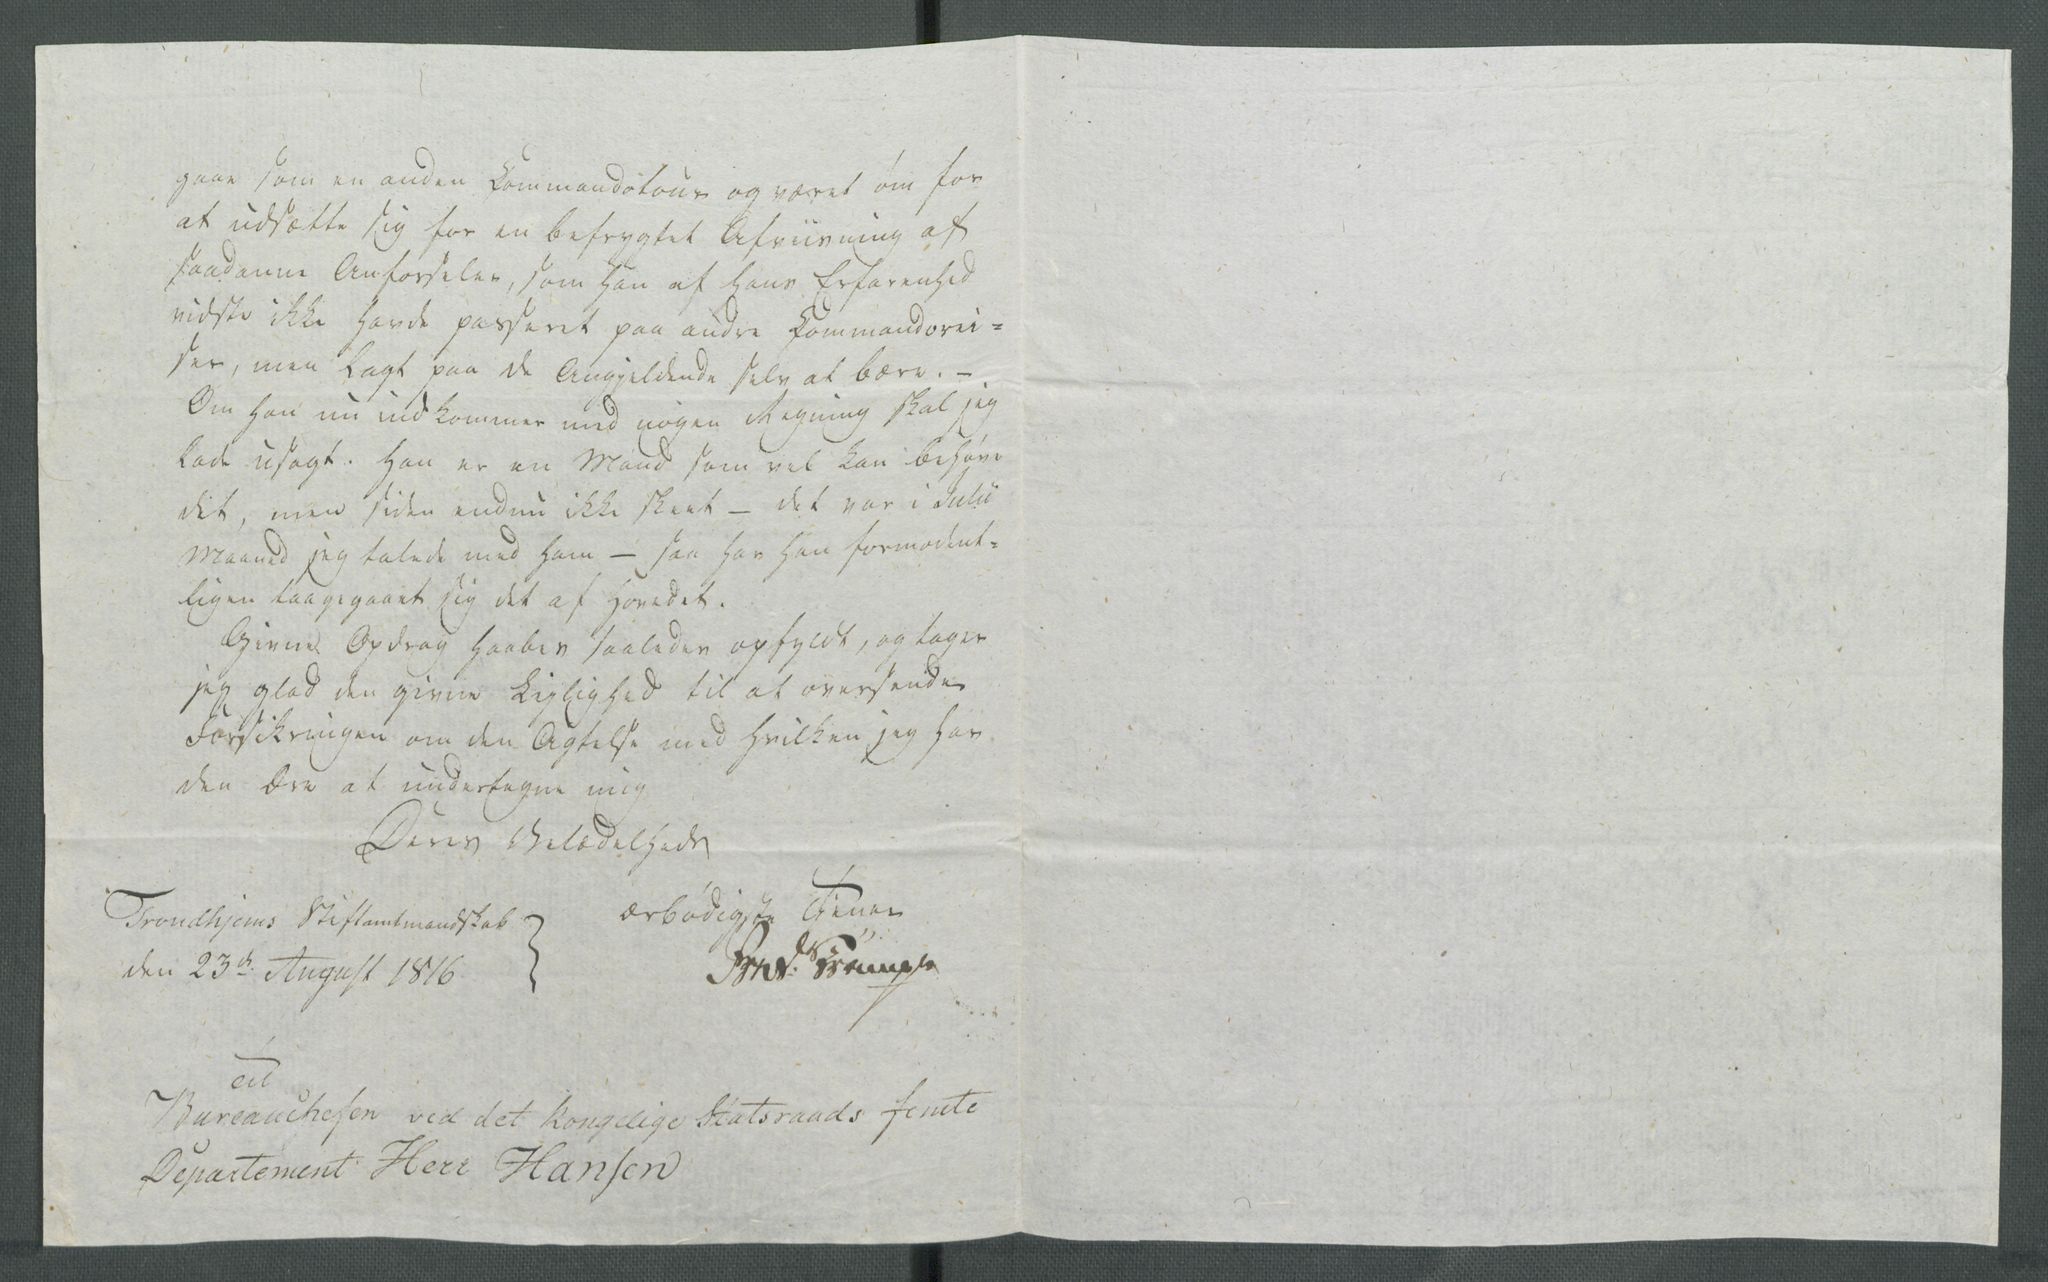 gaae som en anden Commandotour og været øm for
at udsætte sig for en befrygtet Afriivning af
saadanne Anførseler, som han af hans Erfarenhed
vidste ikke havde passeret paa andre Commandorei-
ser, men lagt paa de Angjeldende selv at bære. —
Om han nu indkommer med nogen Regning skal jeg
lade usagt. Han er en Mand som vel kan behøve
det, men siden endnu ikke skeet — det var i Julii
Maaned jeg talede med ham — saa har han formodent-
ligen slaaet sig det af Hovedet.
Givne Opdrag haabes saaledes opfyldt, og tager
jeg glad den givne Leylighed til at oversende
Forsikringen om den Agtelse med hvilken jeg har
den Ære at undertegne mig
Deres Velædelheds
Trondhjems Stiftamtmandskab
den 23d. August 1816
ærbødigste Tiener
Trampe
Til
Bureauchefen ved det kongelige Statsraads femte
Departement Herr Hansen